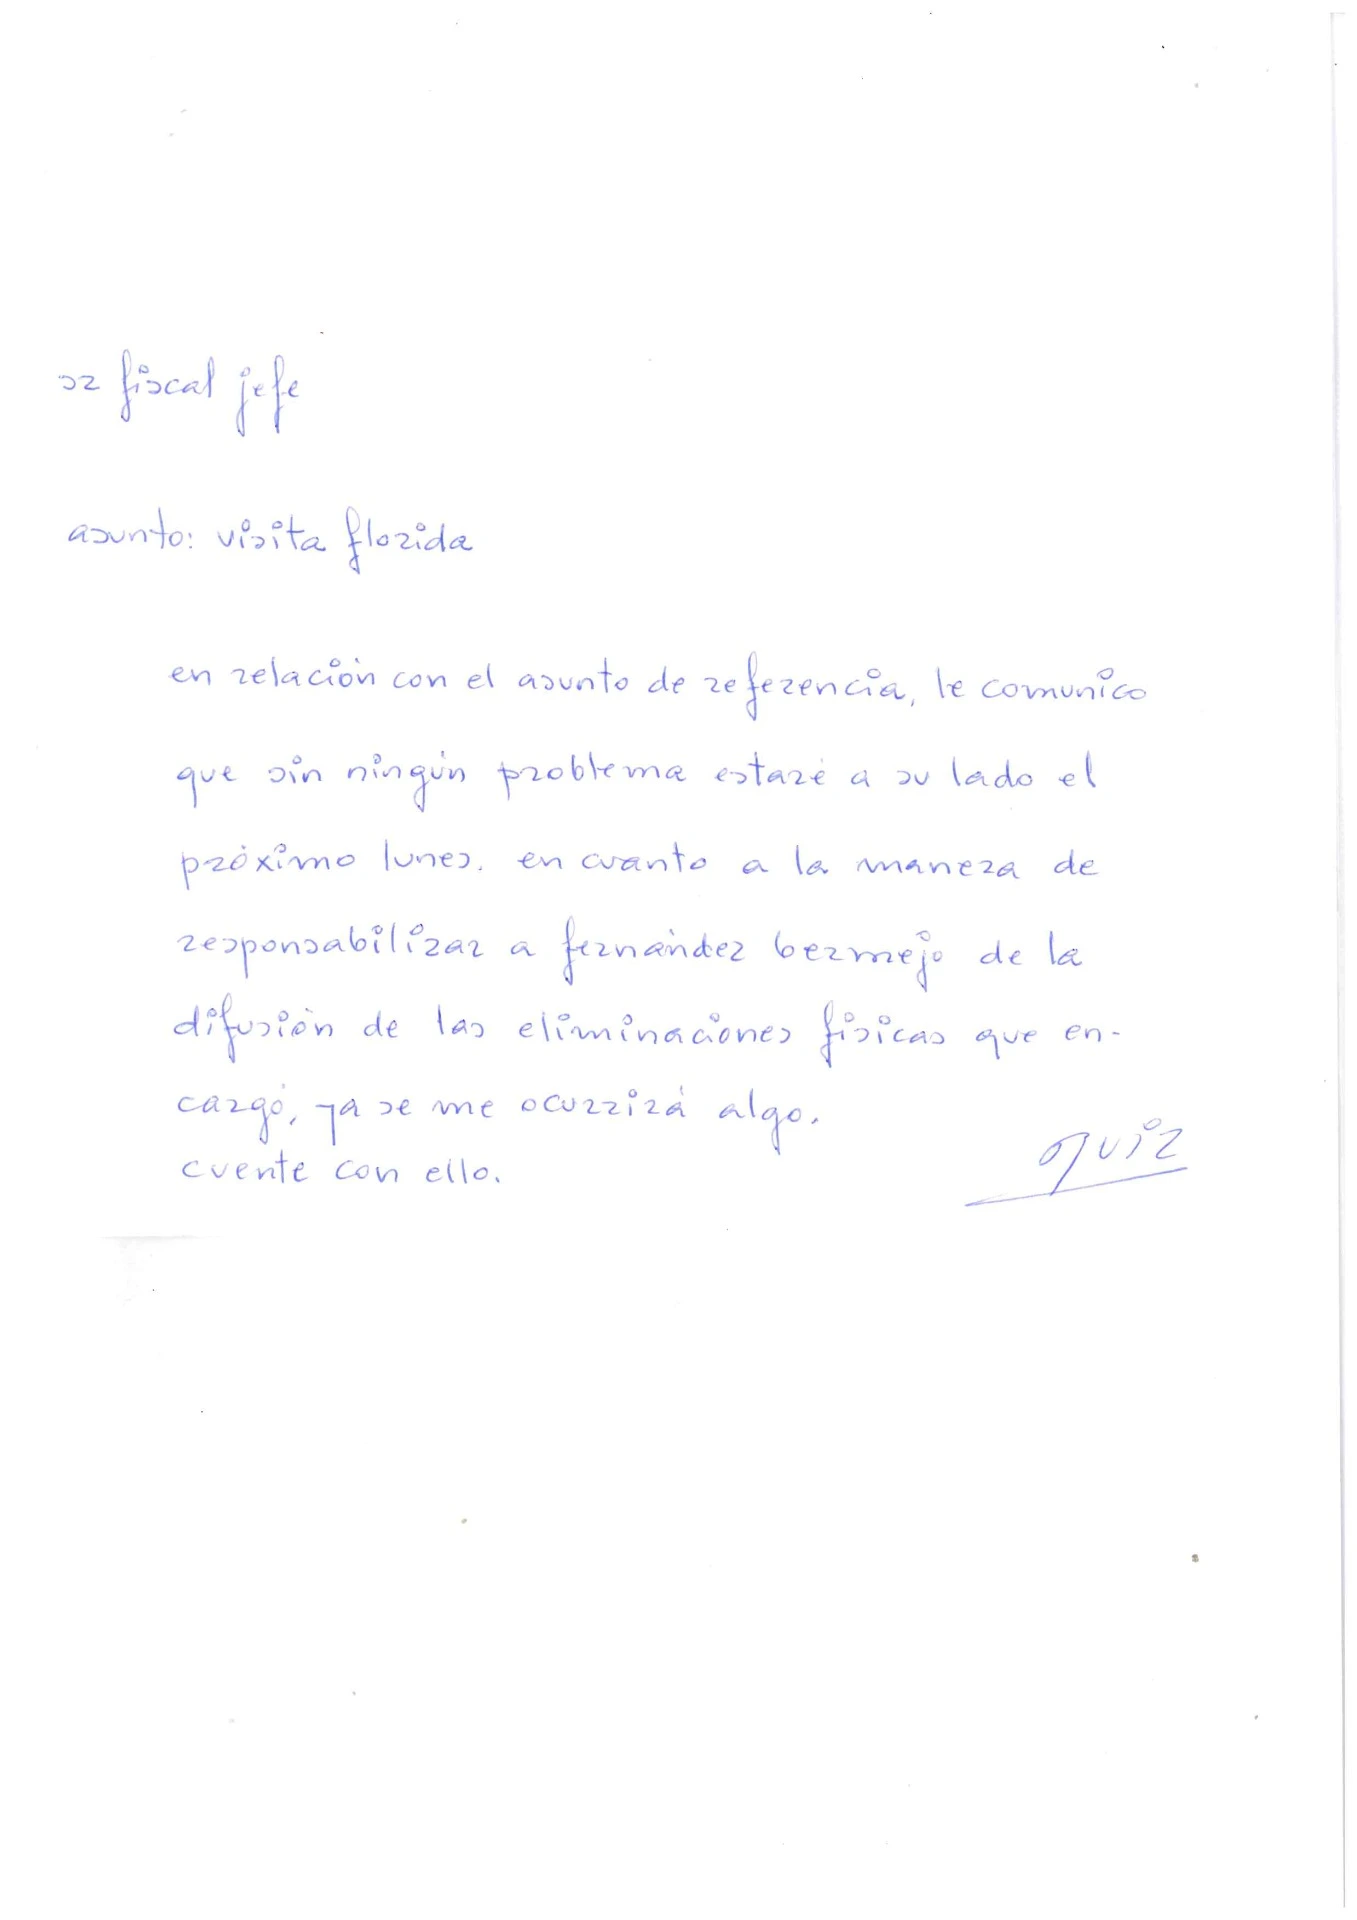 sr fiscal jefe
asunto: visita florida
en relación con el asunto de referencia, le comunico
que sin ningún problema estaré a su lado el
próximo lunes. en cuanto a la manera de
responsabilizar a fernández bermejo de la
difusión de las eliminaciones físicas que en-
cargó, ya se me ocurrirá algo.
cuente con ello.